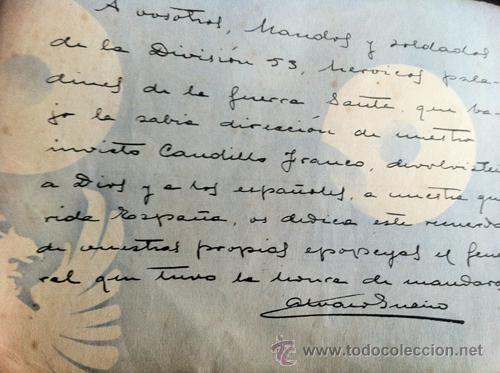 A vosotros, Mandos y soldados
de la División 53, heroicos pala-
dines de la guerra Santa que ba-
jo la sabia dirección de nuestro
invicto Caudillo Franco, devolvisteis
a Dios y a los españoles, a nuestra que
rida España, os dedica este recuerdo
de vuestras propias epopeyas el Gene
ral que tuvo la honra de mandaros
Alvaro Sueiro
www.todocoleccion.net